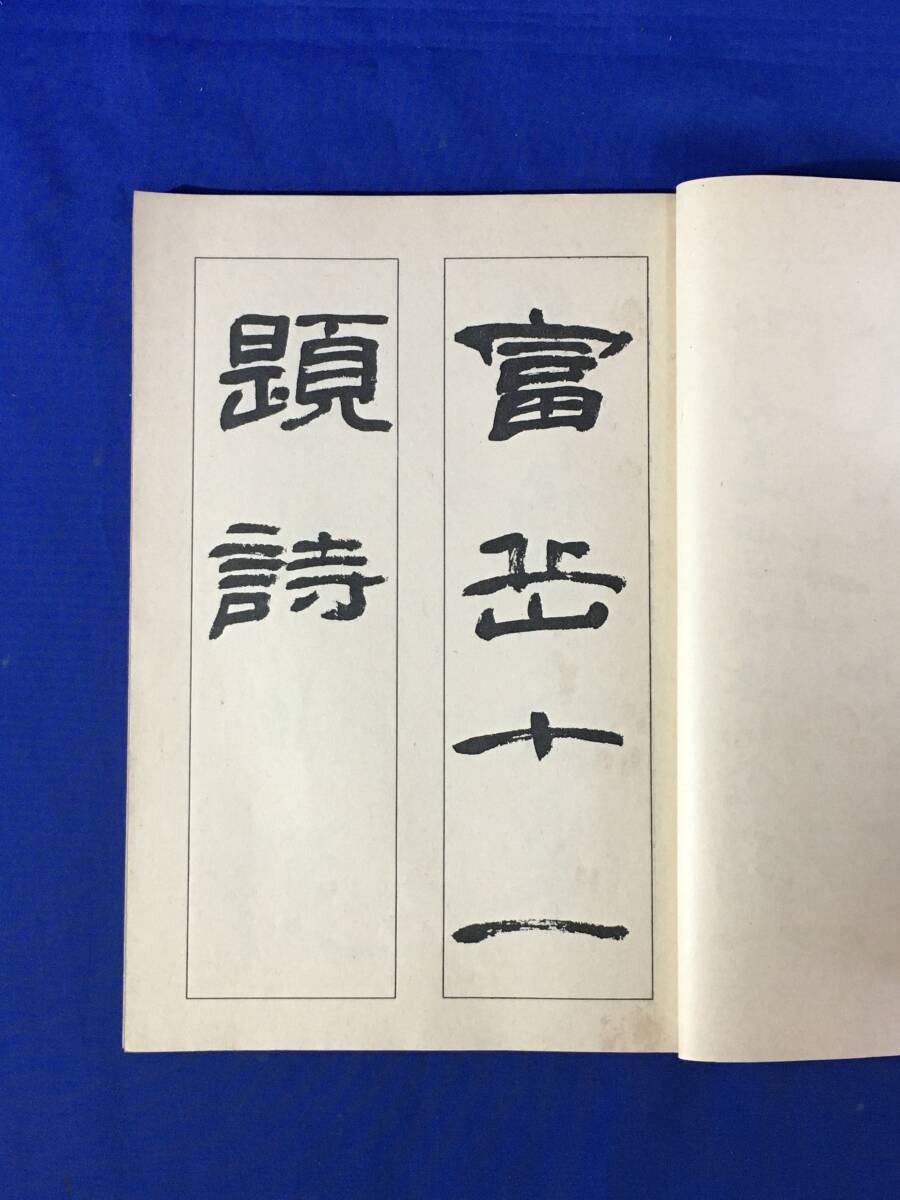 富岳十一
題詩